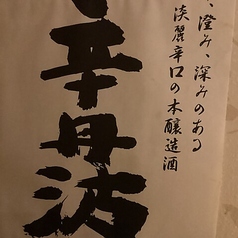 、澄み、深みのある
淡麗辛口の本醸造酒
辛丹波